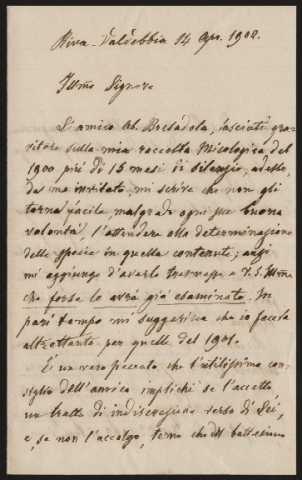 Riva-Valdobbia 14 Apr. 1902.
Illmo Signore
L'amico Ab. Bresadola, lasciati gra-
vitare sulla mia raccolta Micologica del
1900 più di 15 mesi di silenzio, adesso,
da me invitato, mi scrive che non gli
torna facile, malgrado ogni sua buona
volontà, l'attendere alla determinazione
delle specie in quella contenute; anzi
mi aggiunge d'averla trasmessa a V. S. Illma
che forse le avrà già esaminato. In
pari tempo mi suggerisce che io faccia
altrettanto per quelle del 1901.
È un vero peccato che l'utilissimo con-
siglio dell'amico implichi se l'accetto
un tratto di indiscrezione verso di Lei,
e, se non l'accolgo, temo che del battesimo